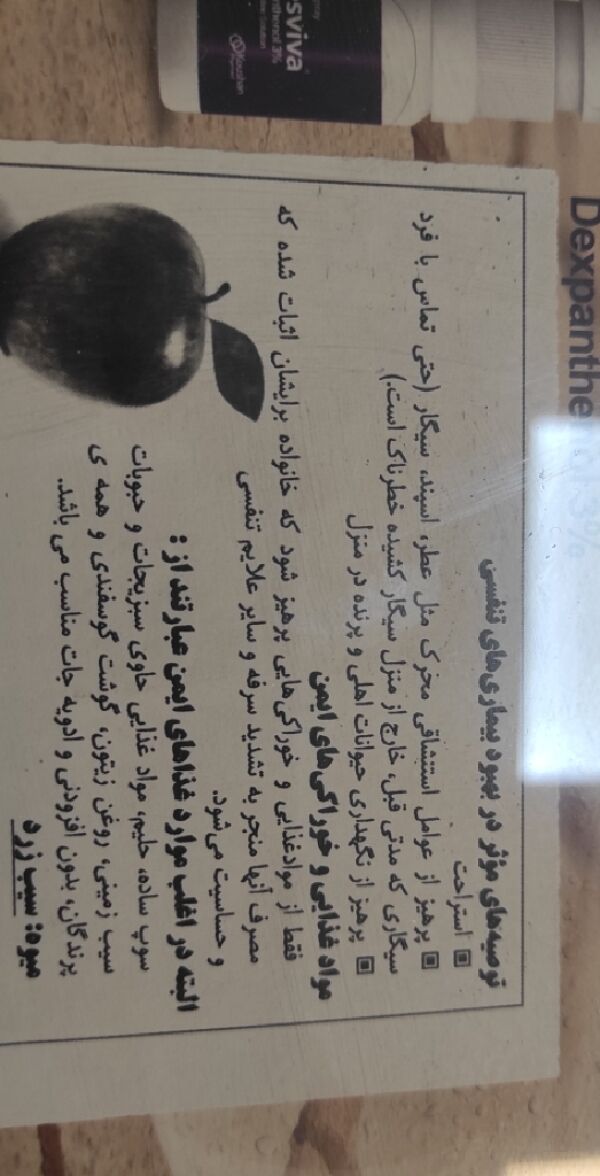 spray
sviva
nthenol 3%
Kavoshan
Dexpanthenol 3%
توصیه‌های مؤثر در بهبود بیماری‌های تنفسی
استراحت
پرهیز از عوامل استنشاقی محرک مثل عطر، اسپند، سیگار (حتی تماس با فرد
سیگاری که مدتی قبل، خارج از منزل سیگار کشیده خطرناک است.)
پرهیز از نگهداری حیوانات اهلی و پرنده در منزل
مواد غذایی و خوراکی‌های ایمن
فقط از موادغذایی و خوراکی‌هایی پرهیز شود که خانواده برایشان اثبات شده که
مصرف آنها منجر به تشدید سرفه و سایر علایم تنفسی
و حساسیت می‌شود.
البته در اغلب موارد غذاهای ایمن عبارتند از :
سوپ ساده، حلیم، مواد غذایی حاوی سبزیجات و حبوبات
سیب زمینی، روغن زیتون، گوشت گوسفندی و همه ی
پرندگان، بدون افزودنی و ادویه جات مناسب می باشد.
میوه: سیب زرد